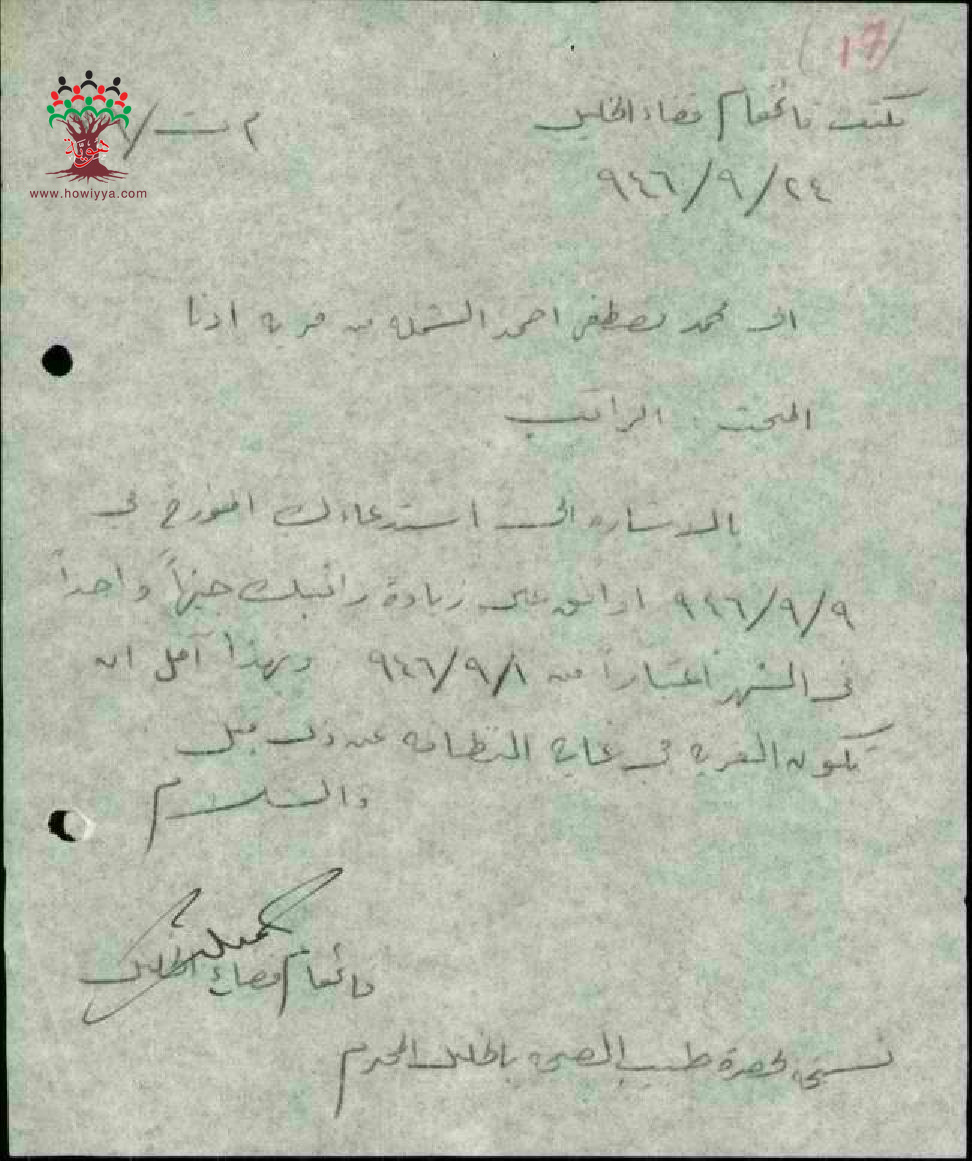 (17)
مكتب قائمقام قضاء الخليل
م ت /
٢٤/٩/٩٤٦
هوية
www.howiyya.com
الى محمد مصطفى احمد من قرية اذنا
المبحث : الراتب
بالاشارة الى استدعاءك المؤرخ في
٩/٩/٩٤٦ اوافق على زيادة راتبك جنيهاً واحداً
في الشهر اعتباراً من ١/٩/٩٤٦ وبهذا آمل ان
تكون القرية في غاية النظافة عن ذي قبل
والسلام
قائمقام قضاء الخليل
نسخة لحضرة طبيب الصحة بالخليل المحترم